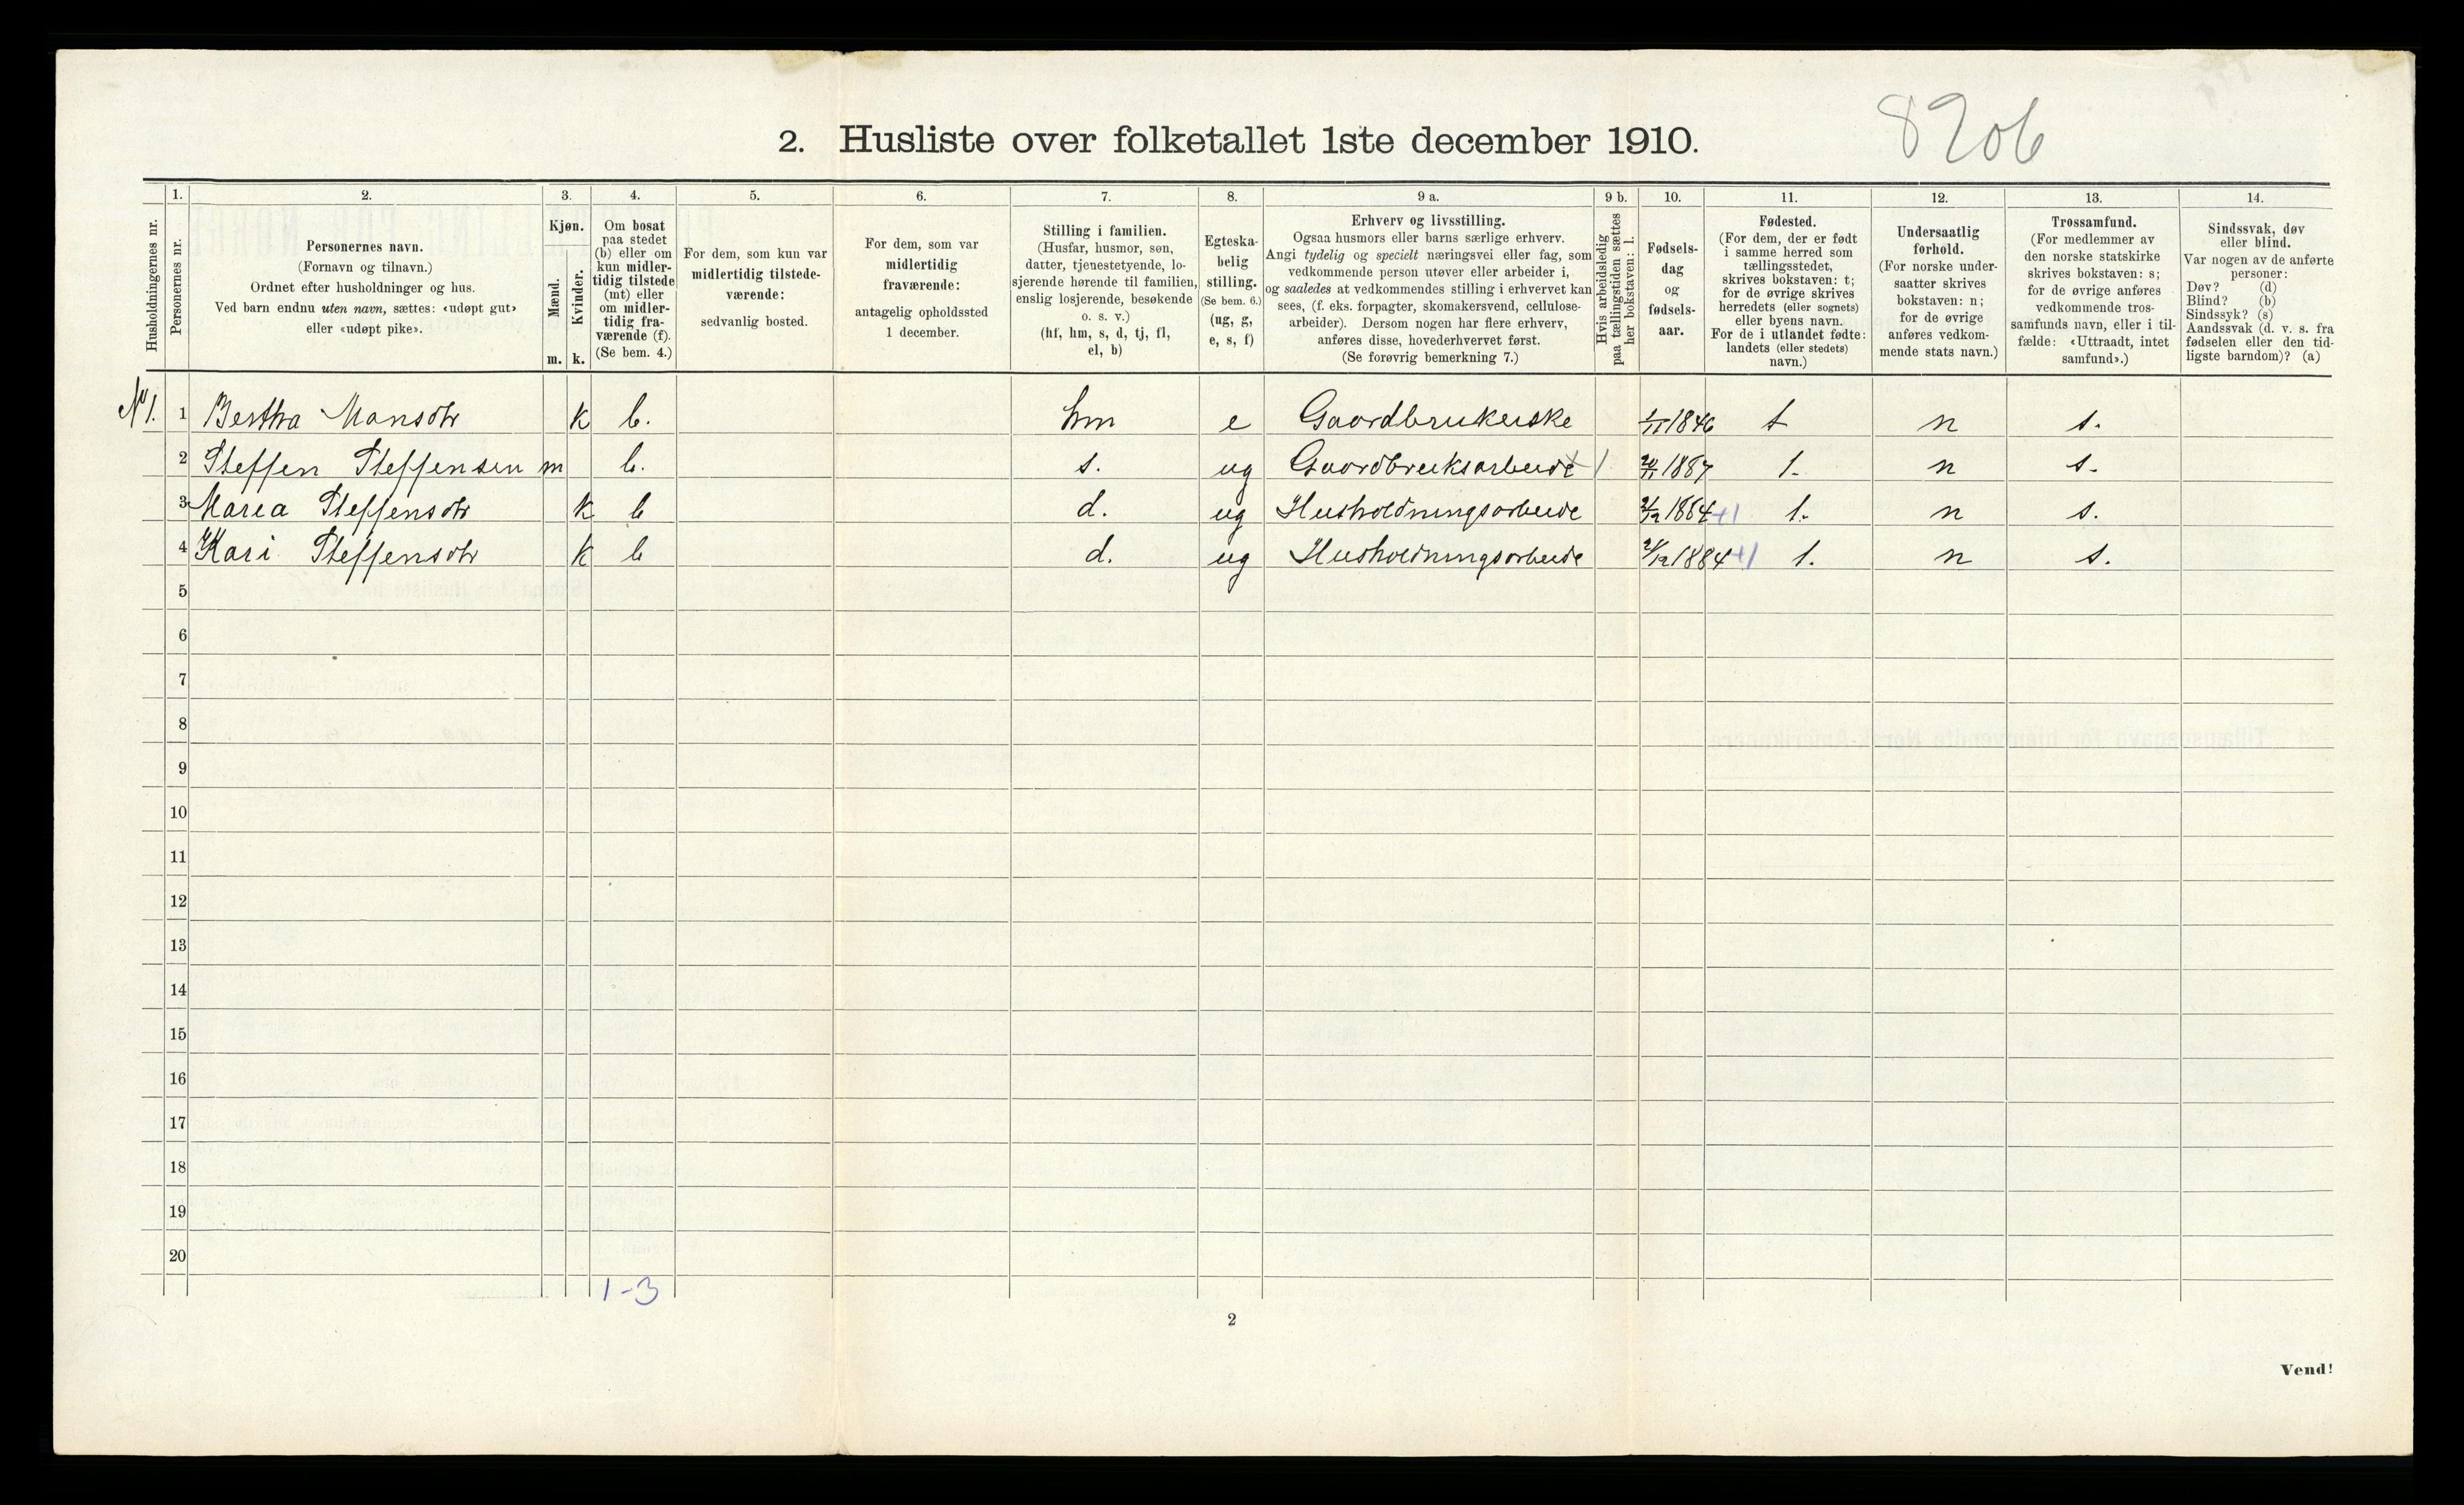 8206
2. Husliste over folketallet 1ste december 1910.
1. 2. 3. 4. 5. 6. 7. 8. 9 a. 9 b. 10. 11. 12. 13. 14.
Husholdningernes nr.
Personernes nr.
Personernes navn.
(Fornavn og tilnavn.)
Ordnet efter husholdninger og hus.
Ved barn endnu uten navn, sættes: «udøpt gut»
eller «udøpt pike».
Kjøn.
Mænd.
Kvinder.
m. k.
Om bosat
paa stedet
(b) eller om
kun midler-
tidig tilstede
(mt) eller
om midler-
tidig fra-
værende (f).
(Se bem. 4.)
For dem, som kun var
midlertidig tilstede-
værende:
sedvanlig bosted.
For dem, som var
midlertidig
fraværende:
antagelig opholdssted
1 december.
Stilling i familien.
(Husfar, husmor, søn,
datter, tjenestetyende, lo-
sjerende hørende til familien,
enslig losjerende, besøkende
o. s. v.)
(hf, hm, s, d, tj, fl,
el, b)
Egteska-
belig
stilling.
(Se bem. 6.)
(ug, g,
e, s, f)
Erhverv og livsstilling.
Ogsaa husmors eller barns særlige erhverv.
Angi tydelig og specielt næringsvei eller fag, som
vedkommende person utøver eller arbeider i,
og saaledes at vedkommendes stilling i erhvervet kan
sees, (f. eks. forpagter, skomakersvend, cellulose-
arbeider). Dersom nogen har flere erhverv,
anføres disse, hovederhvervet først.
(Se forøvrig bemerkning 7.)
Hvis arbeidsledig
paa tællingstiden sættes
her bokstaven: l.
Fødsels-
dag
og
fødsels-
aar.
Fødested.
(For dem, der er født
i samme herred som
tællingsstedet,
skrives bokstaven: t;
for de øvrige skrives
herredets (eller sognets)
eller byens navn.
For de i utlandet fødte:
landets (eller stedets)
navn.)
Undersaatlig
forhold.
(For norske under-
saatter skrives
bokstaven: n;
for de øvrige
anføres vedkom-
mende stats navn.)
Trossamfund.
(For medlemmer av
den norske statskirke
skrives bokstaven: s;
for de øvrige anføres
vedkommende tros-
samfunds navn, eller i til-
fælde: «Uttraadt, intet
samfund».)
Sindssvak, døv
eller blind.
Var nogen av de anførte
personer:
Døv? (d)
Blind? (b)
Sindssyk? (s)
Aandssvak (d. v. s. fra
fødselen eller den tid-
ligste barndom)? (a)
No 1. 1 Bertha Monsdtr k b. hm e Gaardbrukerske 1/11 1846 t n s.
2 Steffen Steffensen m b. s. ug Gaardbruksarbeide 1887 t. n s.
3 Maria Steffensdtr k b d. ug Husholdningsarbeide 1864 +1 t. n s.
4 Kari Steffensdtr k b d. ug Husholdningsarbeide 21/12 1884 +1 t. n s.
5
6
7
8
9
10
11
12
13
14
15
16
17
18
19
20
1-3
2
Vend!